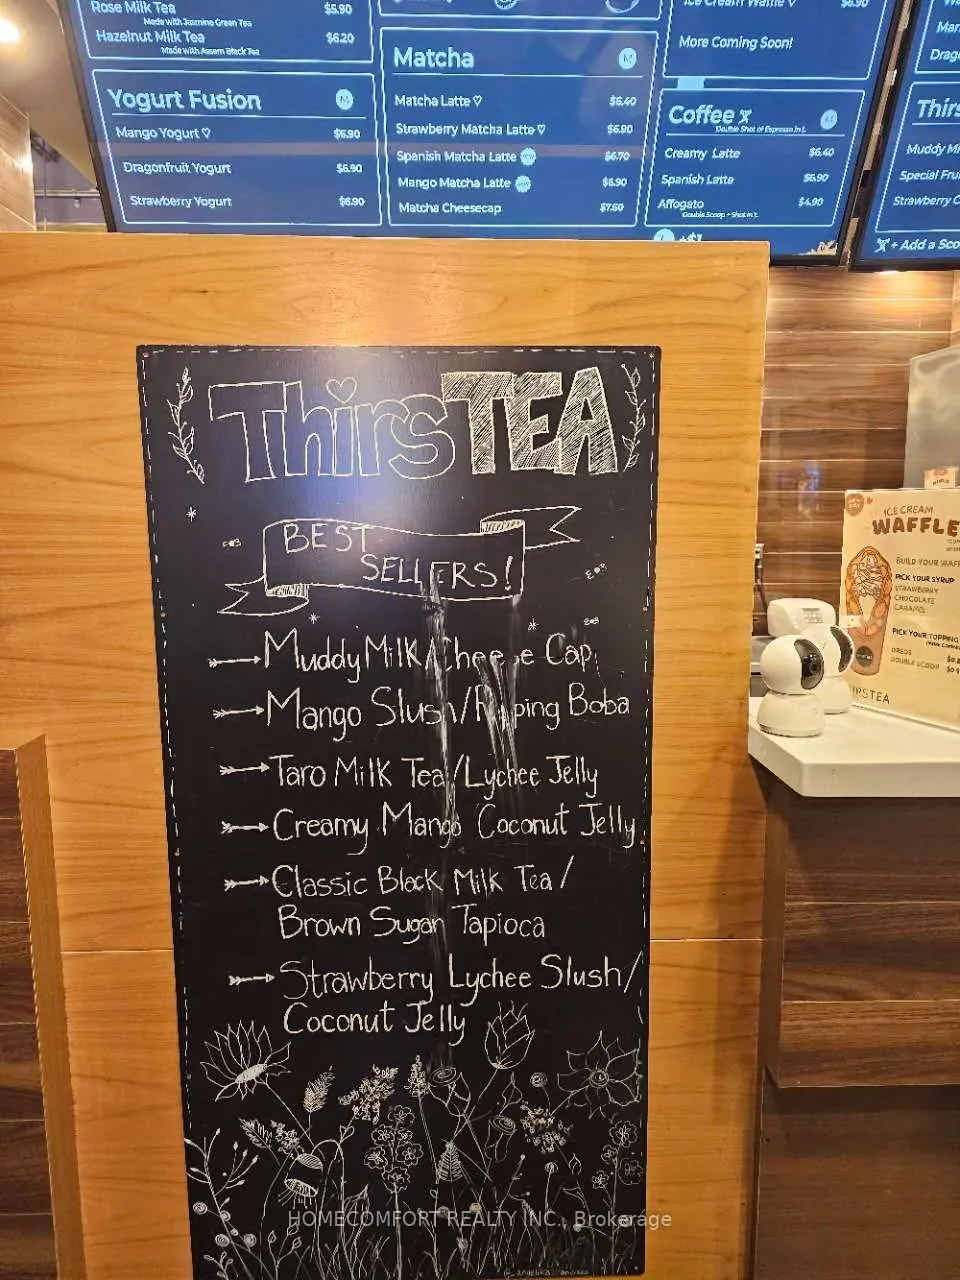 Rose Milk Tea $5.90
Made with Jasmine Green Tea
Hazelnut Milk Tea $6.20
Made with Assam Black Tea
Yogurt Fusion M
Mango Yogurt ♡ $6.90
Dragonfruit Yogurt $6.90
Strawberry Yogurt $6.90
Matcha M
Matcha Latte ♡ $6.40
Strawberry Matcha Latte ♡ $6.90
Spanish Matcha Latte $6.70
Mango Matcha Latte $6.90
Matcha Cheesecap $7.50
Ice Cream Waffle ♡ $6.90
More Coming Soon!
Coffee
Double Shot of Espresso in L
Creamy Latte $6.40
Spanish Latte $6.90
Affogato $4.90
Double Scoop + Shot in L
L +$1
Drago
Thirs
Muddy Mi
Special Frui
Strawberry C
+ Add a Sco
ThirsTEA
BEST
SELLERS!
Muddy Milk/Cheese Cap
Mango Slush/Popping Boba
Taro Milk Tea/Lychee Jelly
Creamy Mango Coconut Jelly
Classic Black Milk Tea/
Brown Sugar Tapioca
Strawberry Lychee Slush/
Coconut Jelly
ICE CREAM
WAFFLE
BUILD YOUR WAFF
PICK YOUR SYRUP
STRAWBERRY
CHOCOLATE
CARAMEL
PICK YOUR TOPPING
OREOS
DOUBLE SCOOP
IRSTEA
HOMECOMFORT REALTY INC., Brokerage